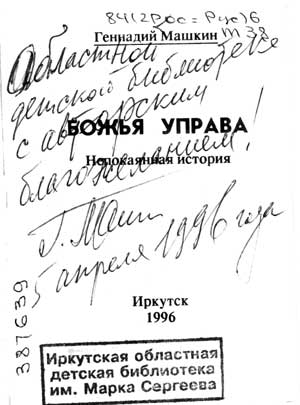 84(2Рос=Рус)6
М 38
Геннадий Машкин
Областной
детской библиотеке
с авторским
благожеланием!
БОЖЬЯ УПРАВА
Непокаянная история
Г. Маш
5 апреля 1996 года
Иркутск
1996
387639
Иркутская областная
детская библиотека
им. Марка Сергеева